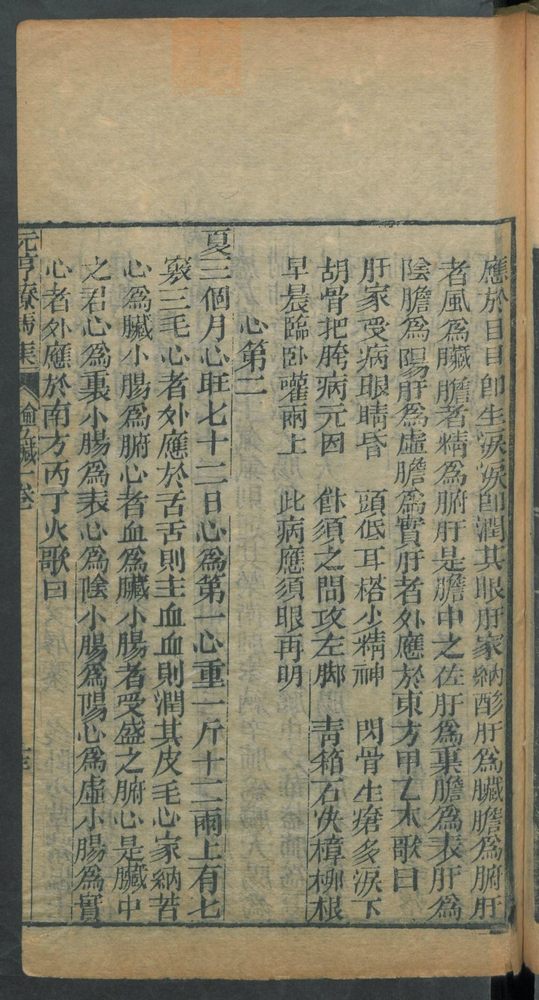 應於目目卽生淚淚卽潤其眼肝家納酸肝爲臟膽爲腑肝
者風爲臟膽者精爲腑肝是膽中之佐肝爲裏膽爲表肝爲
陰膽爲陽肝爲虛膽爲實肝者外應於東方甲乙木歌曰
肝家受病眼睛昏 頭低耳搭少精神 閃骨生瘡多淚下
胡骨把胯病元因 須之間攻左脚 靑箱石決樟柳根
早晨臨卧灌兩上 此病應須眼再明
心第二
夏三個月心旺七十二日心爲第一心重一斤十二兩上有七
竅三毛心者外應於舌舌則主血血則潤其皮毛心家納苦
心爲臟小腸爲腑心者血爲臟小腸者受盛之腑心是臟中
之君心爲裏小腸爲表心爲陰小腸爲陽心爲虛小腸爲實
心者外應於南方丙丁火歌曰
元亨療馬集 論五臟 卷